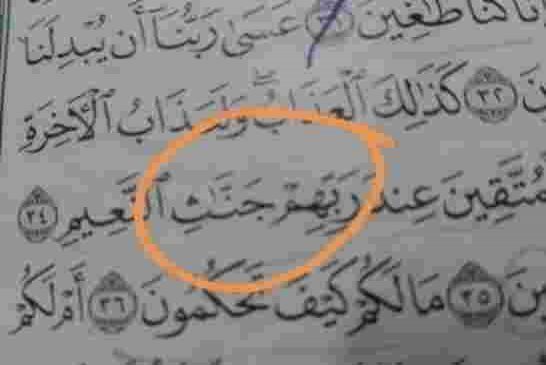 كُنَّا طَٰغِينَ ٣١ عَسَىٰ رَبُّنَا أَن يُبْدِلَنَا
٣٢ كَذَٰلِكَ ٱلْعَذَابُ وَلَعَذَابُ ٱلْأَخِرَةِ
مُتَّقِينَ عِندَ رَبِّهِمْ جَنَّٰتِ ٱلنَّعِيمِ ٣٤
٣٥ مَا لَكُمْ كَيْفَ تَحْكُمُونَ ٣٦ أَمْ لَكُمْ